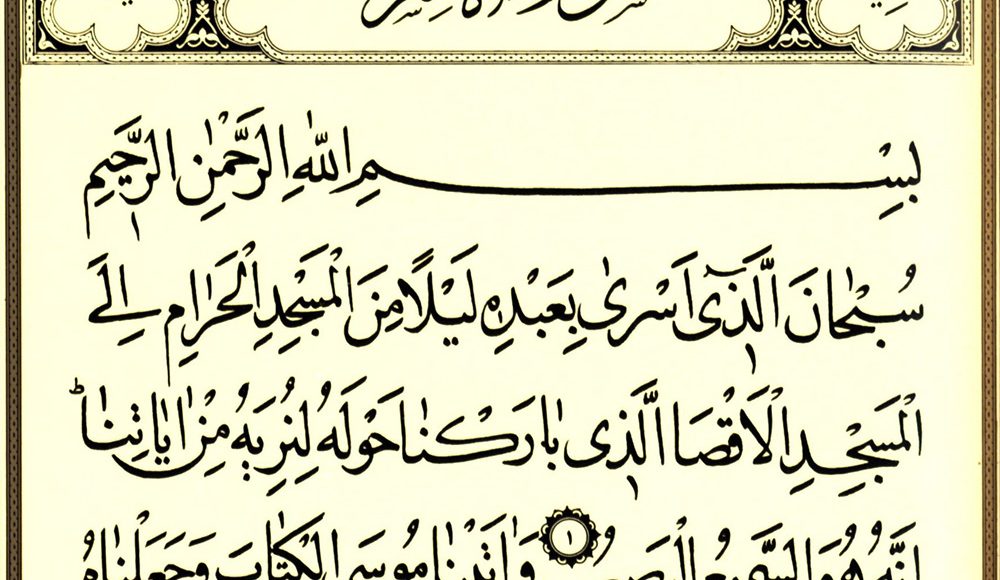 بِسْمِ اللّٰهِ الرَّحْمٰنِ الرَّحٖيمِ
سُبْحَانَ الَّذٖٓى اَسْرٰى بِعَبْدِهٖ لَيْلًا مِنَ الْمَسْجِدِ الْحَرَامِ اِلَى
الْمَسْجِدِ الْاَقْصَا الَّذٖى بَارَكْنَا حَوْلَهُ لِنُرِيَهُ مِنْ اٰيَاتِنَاؕ
اِنَّهُ هُوَ السَّمٖيعُ الْبَصٖيرُ ١ وَاٰتَيْنَا مُوسَى الْكِتَابَ وَجَعَلْنَاهُ